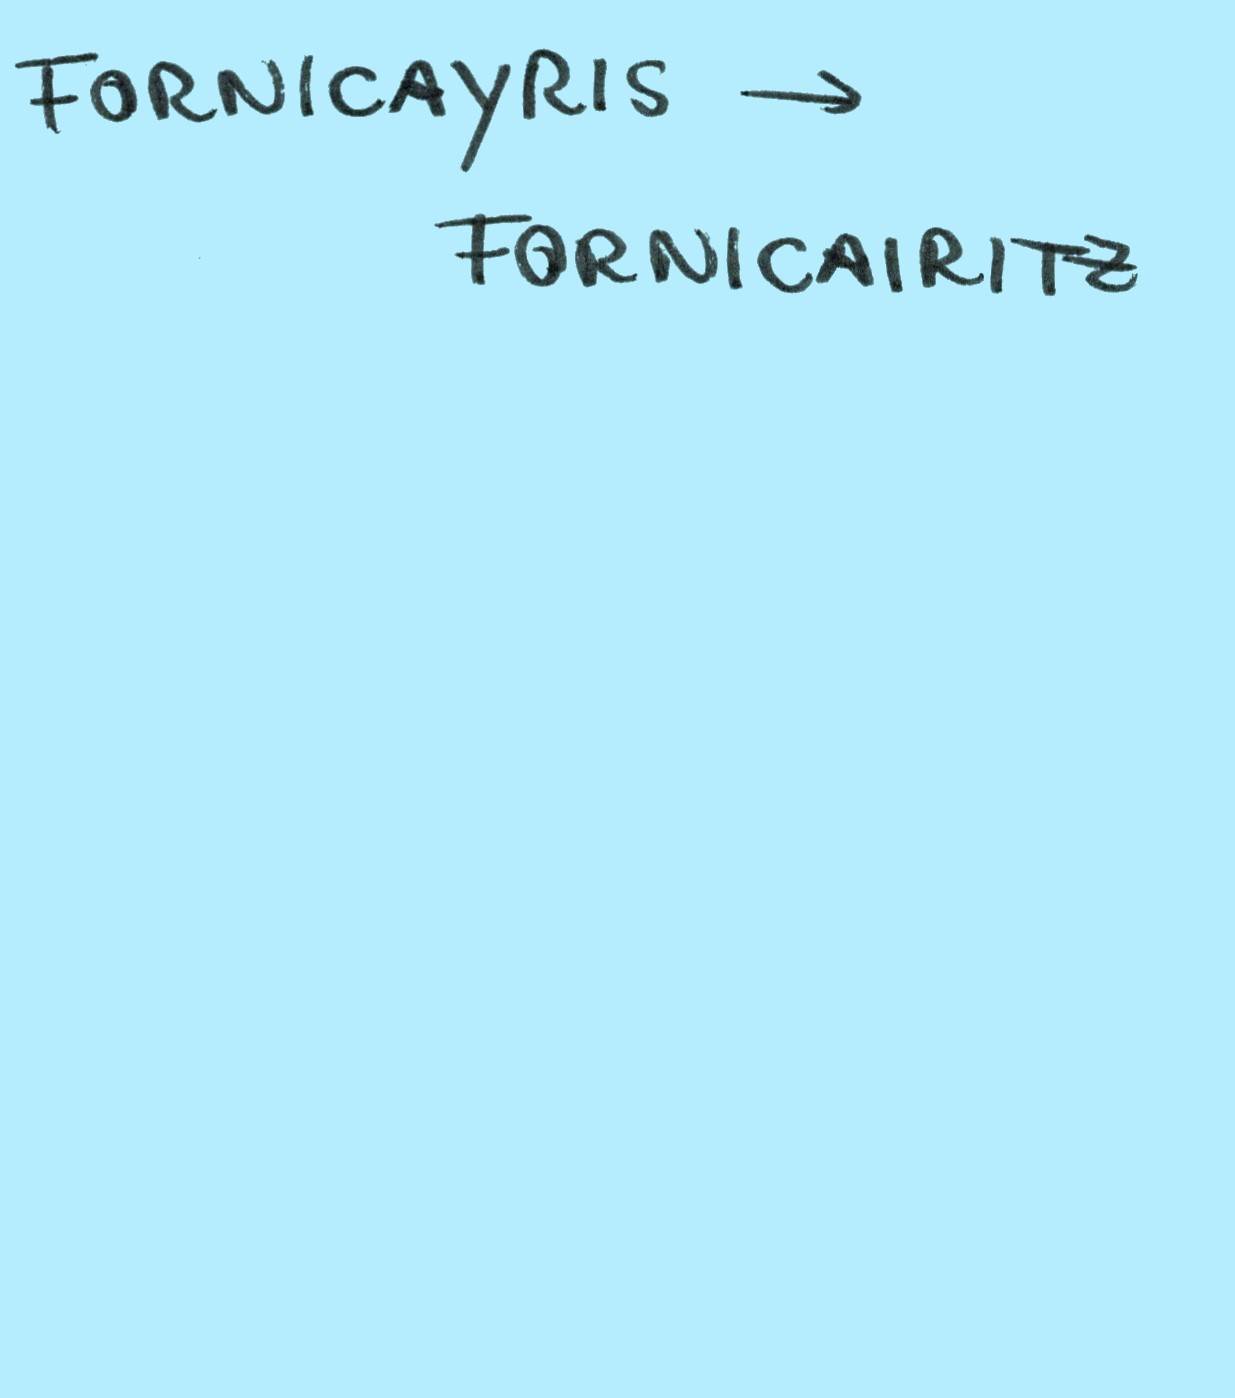 FORNICAYRIS →
FORNICAIRITZ